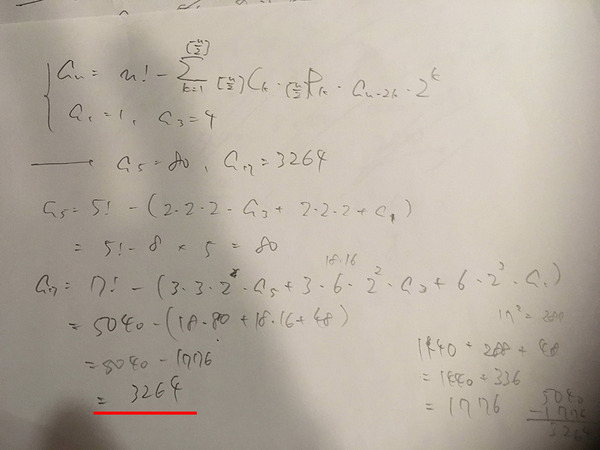 aₙ = n! - Σ_{k=1}^{[n/2]} [n/2]Cₖ · [n/2]Pₖ · aₙ₋₂ₖ · 2ᵏ
a₁ = 1, a₃ = 4
→ a₅ = 80, a₇ = 3264
a₅ = 5! - (2·2·2·a₃ + 2·2·2 + a₁)
= 5! - 8 × 5 = 80
18·16
a₇ = 7! - (3·3·2·a₅ + 3·6·2²·a₃ + 6·2³·a₁)
= 5040 - (18·80 + 18·16 + 48)
= 5040 - 1776
= 3264
1440 + 288 + 48
= 1440 + 336
= 1776
5040
-1776
3264